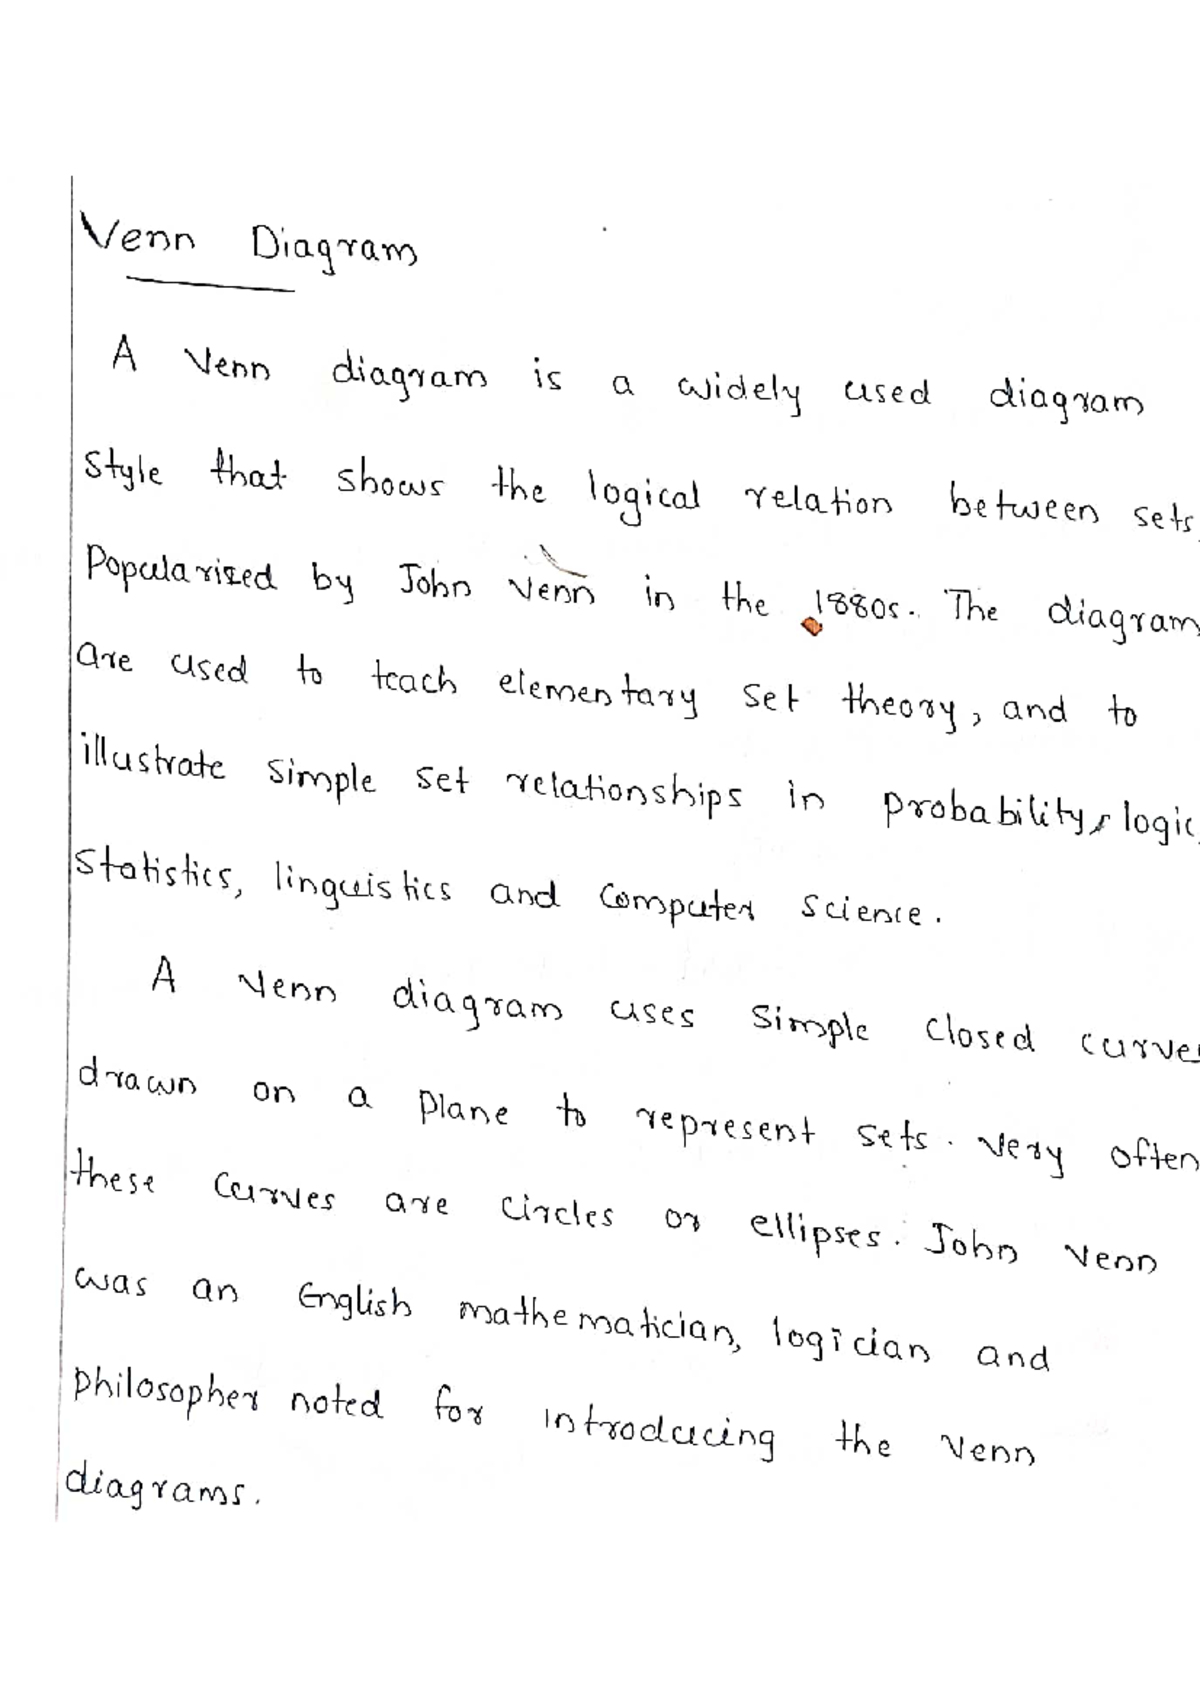 Venn Diagram
A Venn diagram is a widely used diagram
style that shows the logical relation between sets,
Popularized by John Venn in the 1880s. The diagram
are used to teach elementary set theory, and to
illustrate simple set relationships in probability, logic,
Statistics, linguistics and Computer science.
A Venn diagram uses simple closed curves
drawn on a plane to represent sets. Very often
these curves are circles or ellipses. John Venn
was an English mathematician, logician and
philosopher noted for introducing the Venn
diagrams.